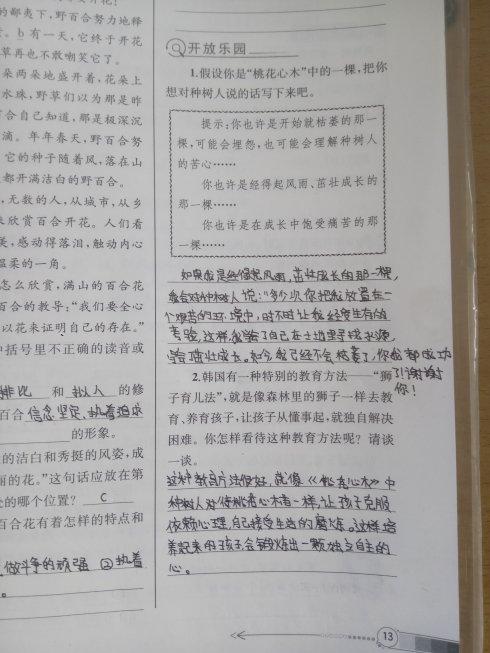 的鄙夷下，野百合努力地释
。b 有一天，它终于开花
草再也不敢嘲笑它了。
朵两朵地盛开着，花朵上
水珠，野草们以为那是昨
百合自己知道，那是极深沉
滴。年年春天，野百合努
它的种子随着风，落在山
都开满洁白的野百合。
，无数的人，从城市，从乡
来欣赏百合开花。人们看
美，感动得落泪，触动内心
温柔的一角。
怎么欣赏，满山的百合花
百合的教导：“我们要全心
以花来证明自己的存在。”
中括号里不正确的读音或
排比 和 拟人 的修
百合 信念坚定、执着追求
的形象。
的洁白和秀挺的风姿，成
丽的花。”这句话应放在第
的哪个位置？ C
百合花有着怎样的特点和
做斗争的顽强 ②执着
。
开放乐园
1.假设你是“桃花心木”中的一棵，把你
想对种树人说的话写下来吧。
提示：你也许是开始就枯萎的那一
棵，可能会埋怨，也可能会理解种树人
的苦心……
你也许是经得起风雨、茁壮成长的
那一棵……
你也许是在成长中饱受痛苦的那
一棵……
如果我是经得起风雨，茁壮成长的那一棵，
我会对种树人说：“多少次你把我放置在一
个艰苦的环境中，时不时让我经受生存的
考验，这样我学会了自己在土地里寻找水源，
茁壮成长。如今我已经不会枯萎了，你 都成功
了！谢谢
你！
2.韩国有一种特别的教育方法——“狮
子育儿法”，就是像森林里的狮子一样去教
育、养育孩子，让孩子从懂事起，就独自解决
困难。你怎样看待这种教育方法呢？请谈
一谈。
这种教育方法很好，就像《桃花心木》中
种树人对待桃花心木苗一样，让孩子克服
依赖心理，自己接受生活的磨炼。这样培
养起来的孩子会锻炼出一颗独立自主的
心。
13